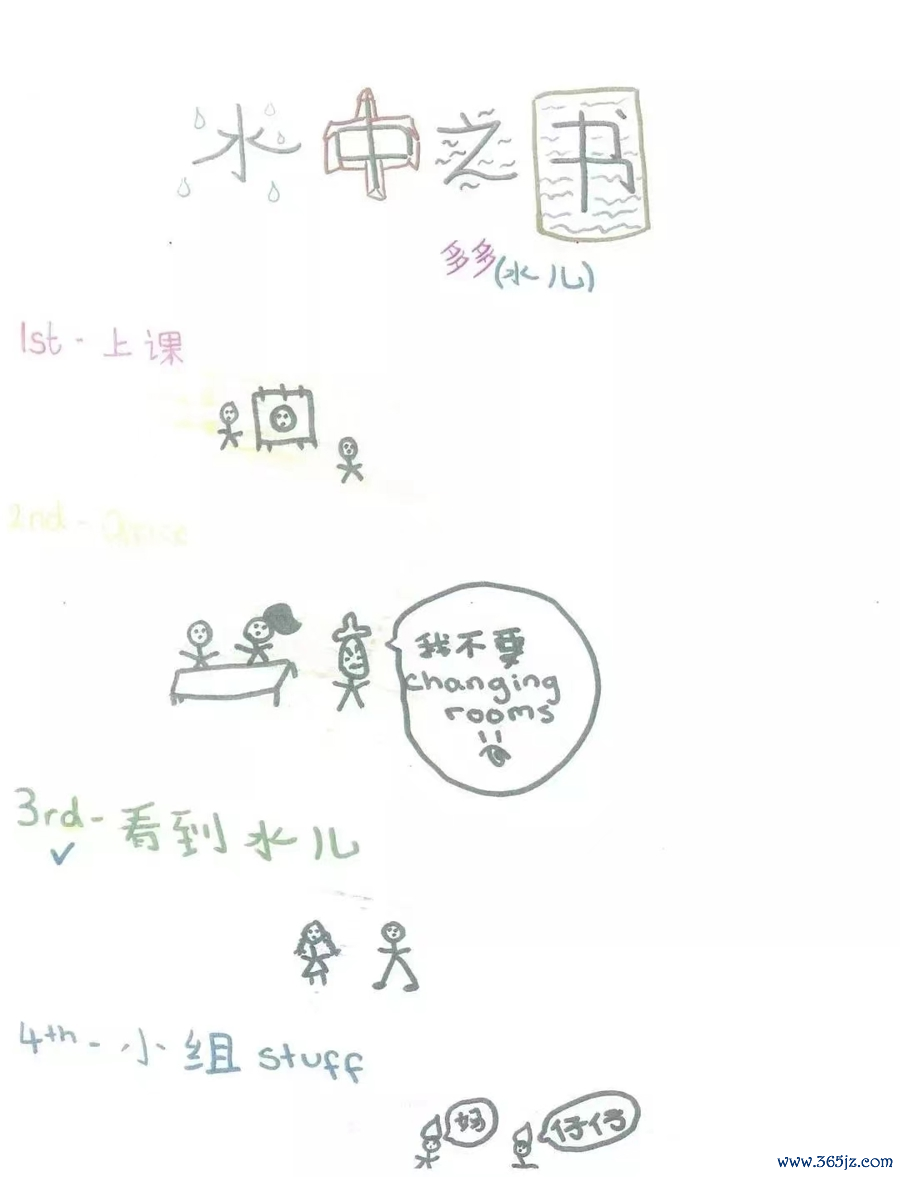 水中之书
多多(水儿)
1st - 上课
2nd - Office
我不要
changing
rooms
3rd - 看到水儿
4th - 小组 stuff
好
仔仔
www.365jz.com